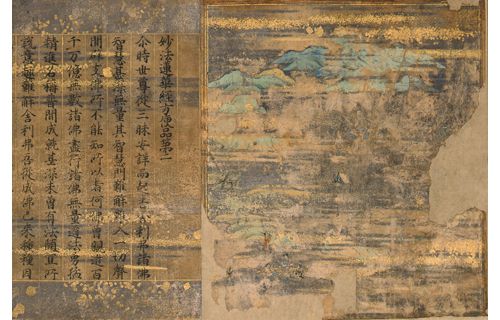 妙法蓮華經方便品第二
尒時世尊從三昧安詳而起告舍利弗諸佛
智慧甚深無量其智慧門難解難入一切聲
聞辟支佛所不能知所以者何佛曾親近百
千万億無數諸佛盡行諸佛無量道法勇猛
精進名稱普聞成就甚深未曾有法隨宜所
說意趣難解舍利弗吾從成佛已來種種因